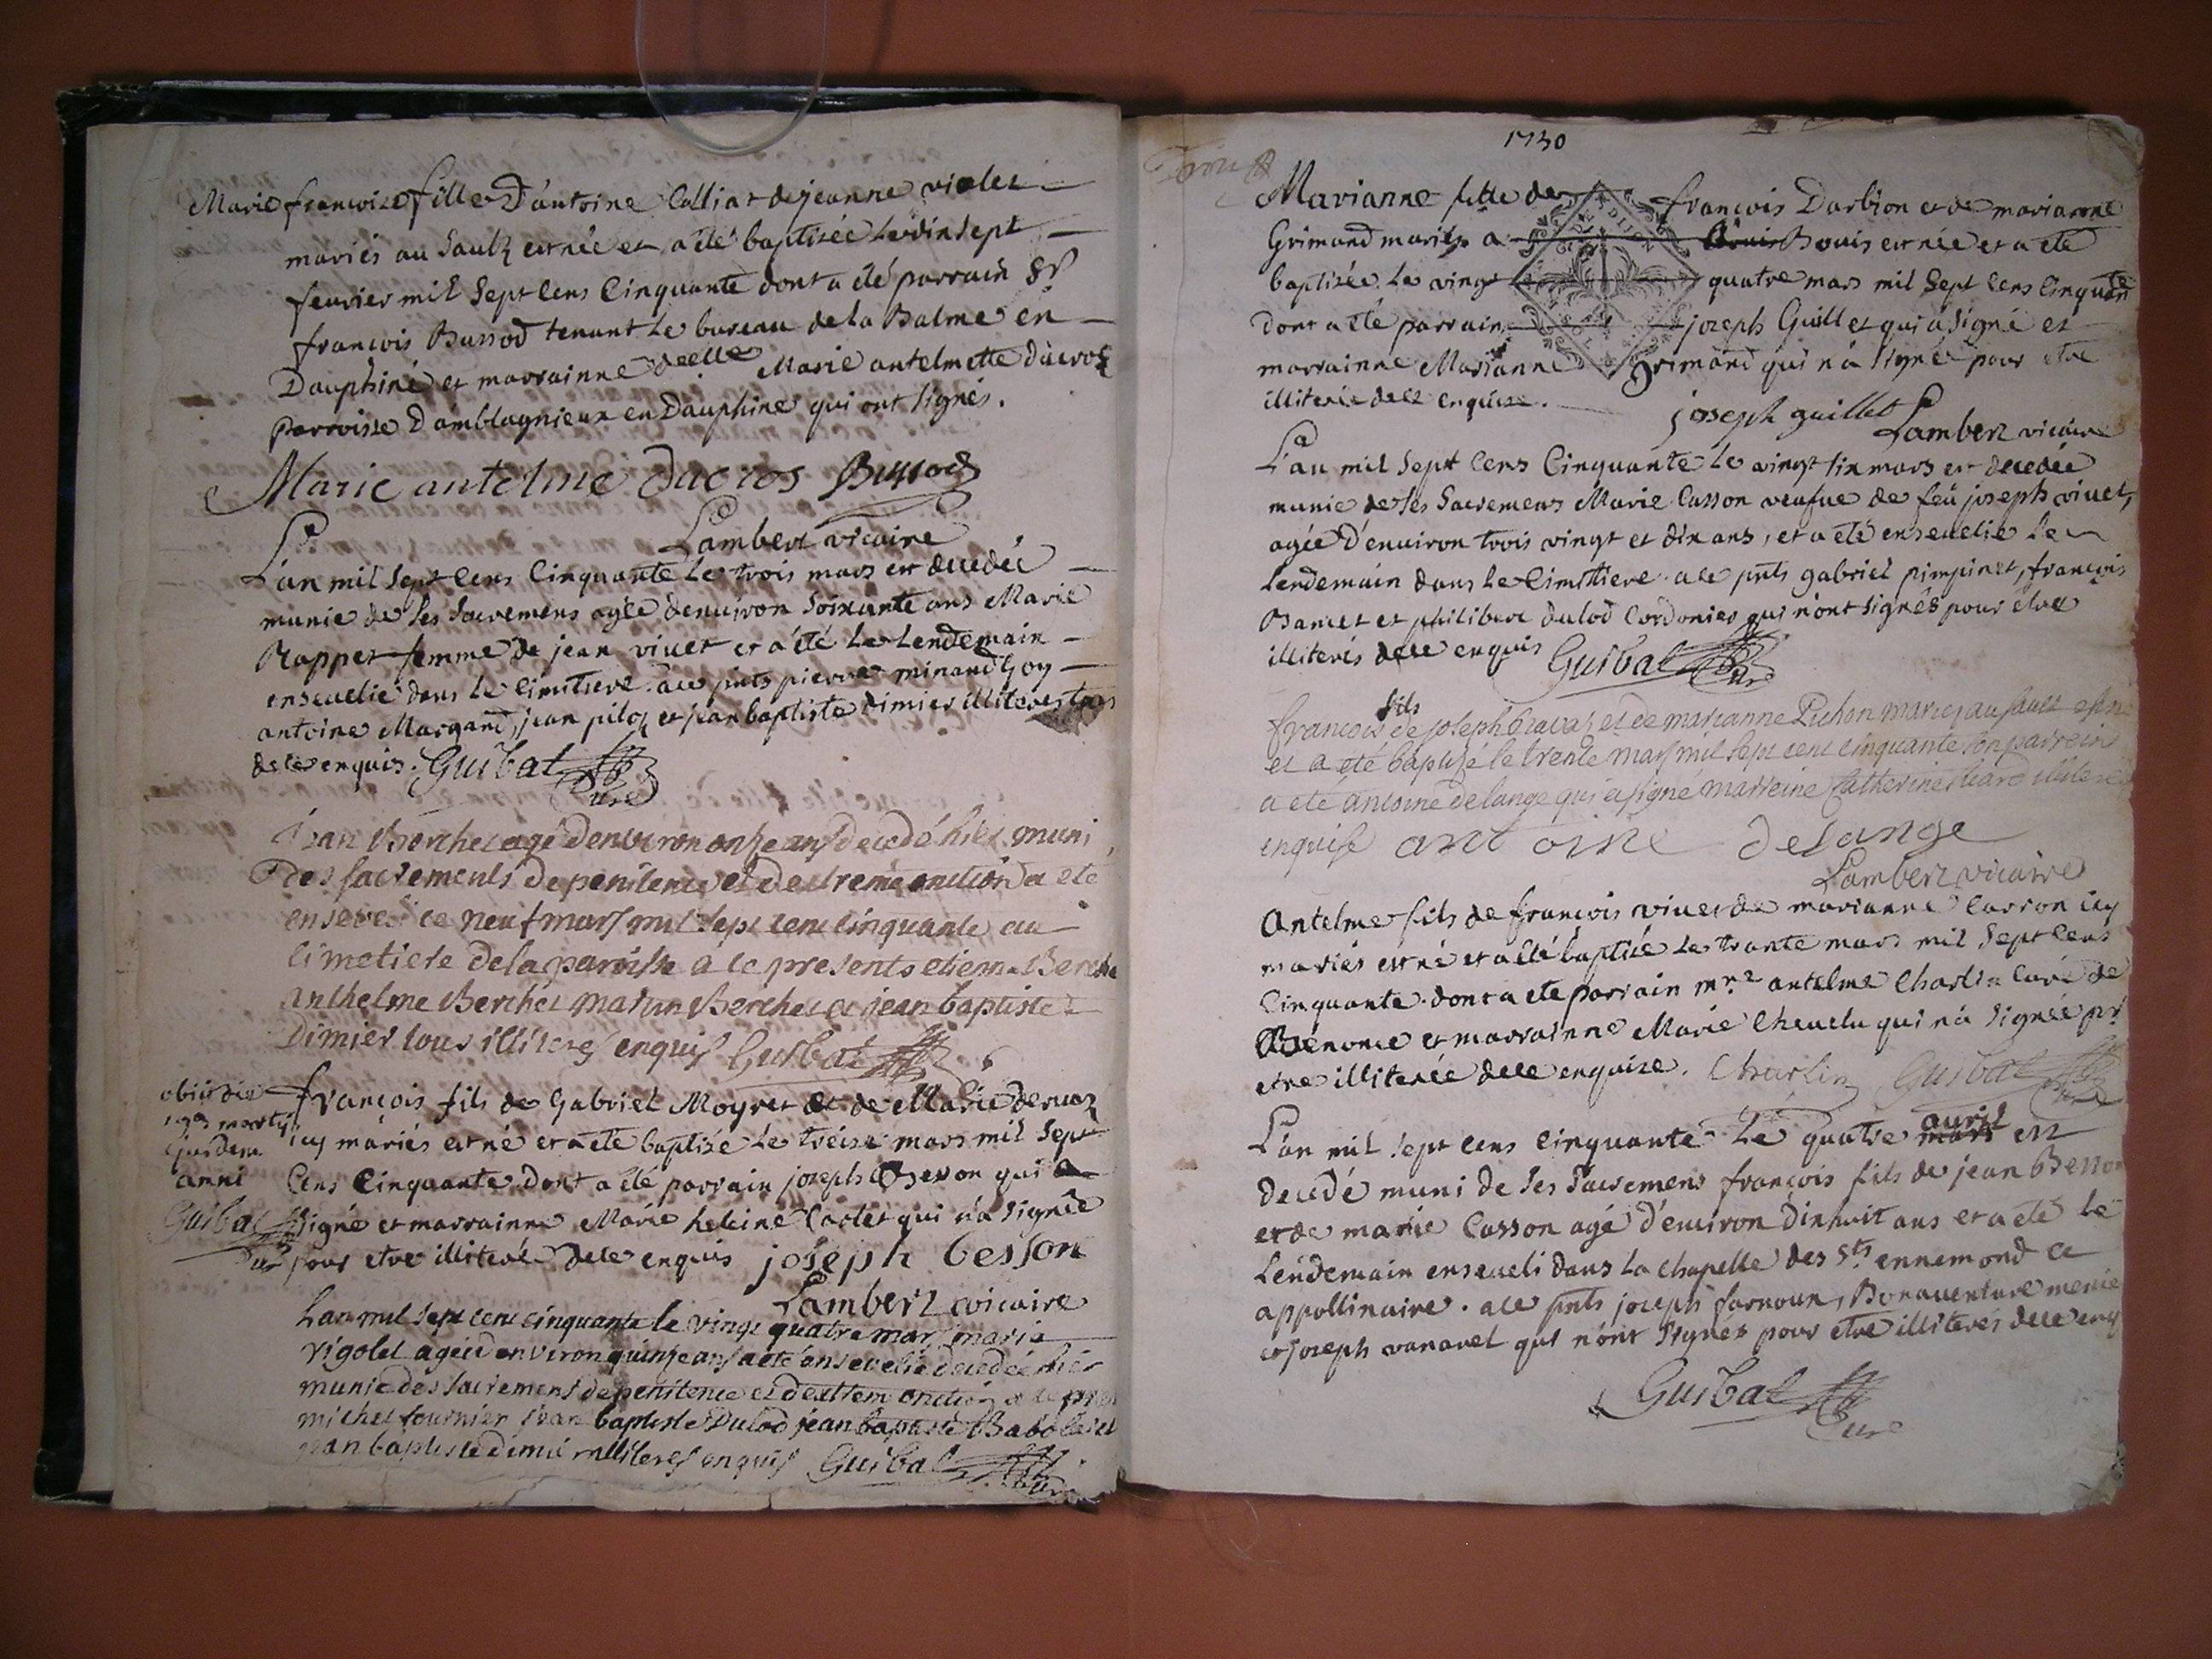 Marie francoise fille D'antoine Colliat de jeanne violet
mariés au Sault est née et a été baptizée le dix sept
feurier mil Sept Cens Cinquante dont a été parrain Sr.
francois Bussod tenant le bureau de la Balme en
Dauphiné et marrainne delle Marie antelmette ducros
parroisse D'amblagnieux en Dauphine qui ont signés.
Marie antelme ducros Bussod
Lambert vicaire
L'an mil Sept Cens Cinquante le trois mars est decedée
munie de ses Sacremens agée denuiron soixante ans Marie
Rappet femme de jean viuet et a été le lendemain
enseuelie dans le Cimitiere. a ce pnts pierre minand Goy
antoine Margand, jean piloz et jean baptiste dimier illiteres tous
de ce enquis. Guibal Curé
jean Berchet agé denviron onze ans decedé hier muni
des sacrements de penitence et dextreme onction a ete
enseveli ce neuf mars mil sept cent cinquante au
cimetiere de la paroisse a ce presents etienne Berchet
anthelme Berchet martin Berchet et jean baptiste
Dimier tous illiteres enquis Guibal
obiit die
martij
ejusdem
anni
Guibal
Curé
francois fils de Gabriel Moyret et de Marie deruaz
icy mariés est né et a ete baptizé le treise mars mil Sept
Cens Cinquante dont a été parrain joseph Beson qui a
signé et marrainne Marie heleine Carlet qui n'a signée
pour etre illiteré de ce enquis joseph besson
Lambert vicaire
Lan mil sept cent cinquante le vingt quatre mars marie
rigolet agée denviron quinze ans a eté ensevelie decedée hier
munie des sacrements de penitence et dextrem onction a ce
michel fournier jean baptiste Dulod jean baptiste
jean baptiste dimié illiteres enquis Guibal Curé
1750
Marianne fille de francois Darbion et de marianne
Grimand mariés a Bouis est née et a eté
baptizée le vingt quatre mars mil Sept Cens Cinquante
dont a été parrain joseph Guillet qui a signé et
marrainne Marianne Grimand qui n'a signé pour etre
illiterée de ce enquise.
joseph guillet Lambert vicaire
L'an mil Sept Cens Cinquante le vingt six mars est decedée
munie de ses Sacremens Marie Casson veufue de feu joseph viuet,
agée d'enuiron trois vingt et dix ans, et a été enseuelie le
lendemain dans le Cimitiere. a ce pnts gabriel pimpinet, francois
Bancet et philibert dulod Cordonier qui n'ont signés pour etre
illiterés de ce enquis Guibal Curé
francois fils de joseph et de marianne Pichon mariez au sault est né
et a été baptisé le trente mars mil sept cent cinquante son parrein
a eté antoine delange qui a signé marreine Catherine illiterée
enquise antoine delange
Lambert vicaire
Antelme fils de francois viuet de marianne Carron icy
mariés est né et a été baptizé le trante mars mil Sept Cens
Cinquante. dont a ete parrain mre antelme Charlin Curé de
Benonce et marrainne Marie Cheuelu qui n'a signée pr.
etre illiterée de ce enquise. Charlin Guibal Curé
L'an mil sept cens Cinquante Le quatre mars auril est
decedé muni de ses Sacremens francois fils de jean Besson
et de marie Casson agé d'enuiron dixhuit ans et a été le
Lendemain enseueli dans la chapelle des Sts. ennemond et
appollinaire. a ce pnts joseph fornoux, Bonauenture
et joseph vanavel qui n'ont signés pour etre illiterés de ce enq
Guibal
Curé